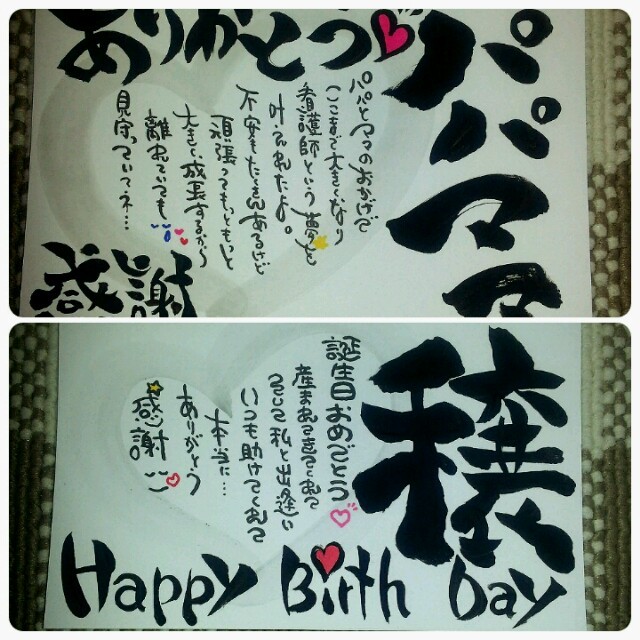 パパママ
ありがとう
パパとママのおかげで
ここまで大きくなり
看護師という夢を
叶えれたよ。
不安もたくさんあるけど
頑張ってもっともっと
大きく成長するから
離れていても
見守っていてネ…
感謝
穣
誕生日おめでとう
産まれてきてくれて
そして私と出逢い
いつも助けてくれて
本当に…
ありがとう
感謝
Happy Birth Day